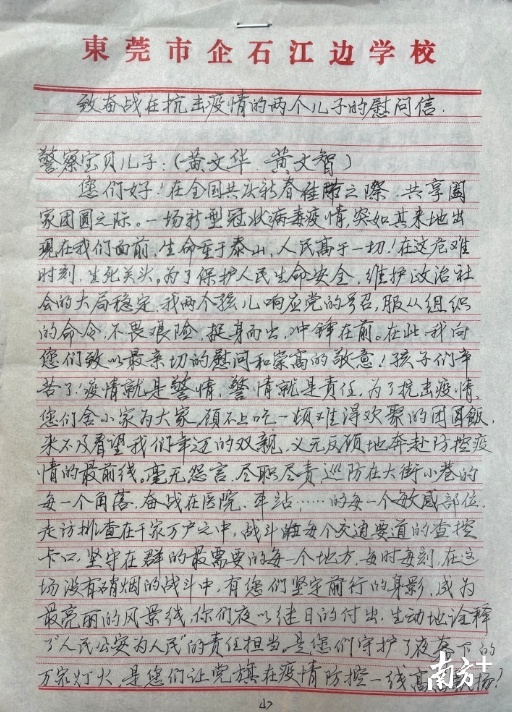 東莞市企石江边学校
致奋战在抗击疫情的两个儿子的慰问信.
警察宝贝儿子:(黄文华 黄文智)
您们好!在全国共庆新春佳陏之際.共享阖
家团圆之际。一场新型冠状病毒疫情,突如其来地出
现在我们面前,生命至于泰山,人民高于一切!在这危难
时刻,生死关头,为了保护人民生命安全,维护政治社
会的大局稳定,我两个孩儿响应党的号召,服从组织
的命令,不畏艰险,挺身而出,冲锋在前。在此我向
您们致以最亲切的慰问和崇高的敬意!孩子们辛
苦了!疫情就是警情,警情就是责任,为了抗击疫情,
您们舍小家为大家,顾不上吃一顿难得欢聚的团圆飯,
来不及看望我们年迈的双親,义无反顾地奔赴防控疫
情的最前线,毫无怨言,尽职尽责巡防在大街小巷的
每一个角落,奋战在医院、车站……的每一个敏感部位,
走访排查在千家万户之中,战斗在每个交通要道的查控
卡口,坚守在群的最需要的每一个地方,每时每刻,在这
场没有硝烟的战斗中,有您们坚守前行的身影,成为
最亮丽的风景线,你们夜以继日的付出,生动地诠释
了"人民公安为人民"的责任担当,是您们守护了夜幕下的
万家灯火,是您们让党旗在疫情防控一线高高飘扬!
南方+